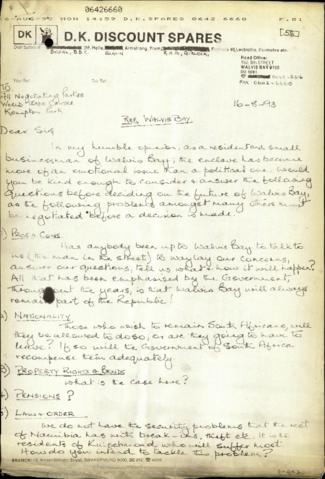 06426660
MON 14:59 D.K. SPARES 0642 6660 P.01
DK D.K. DISCOUNT SPARES
Head Office:
WALVIS BAY 9190
To
All Negotiating Parties
World Trade Centre
Kempton Park
16-8-93
Dear Sirs
Re: Walvis Bay
In my humble opinion, as a resident & small
businessman of Walvis Bay, the enclave has become
more of an emotional issue than a political one. Would
you be kind enough to consider & answer the following
questions before deciding on the future of Walvis Bay,
as the following problems amongst many others must
be negotiated before a decision is made.
Has anybody been up to Walvis Bay to talk to
us (the man in the street) to waylay our concerns,
answer our questions, tell us what & how it will happen?
All that has been emphasised by the Government,
throughout the years, is that Walvis Bay will always
remain part of the Republic!
2) Nationality
Those who wish to remain South Africans, will
they be allowed to do so, or are they going to have to
leave? If so will the Government of South Africa
recompense them adequately
3) Property Rights & Bonds
What is the case here?
4) Pensions?
5) Law & Order
We do not have the security problems that the rest
of Namibia has with break-ins, theft etc. It is the
residents of Kuisebmond who will suffer most.
How do you intend to tackle this problem?